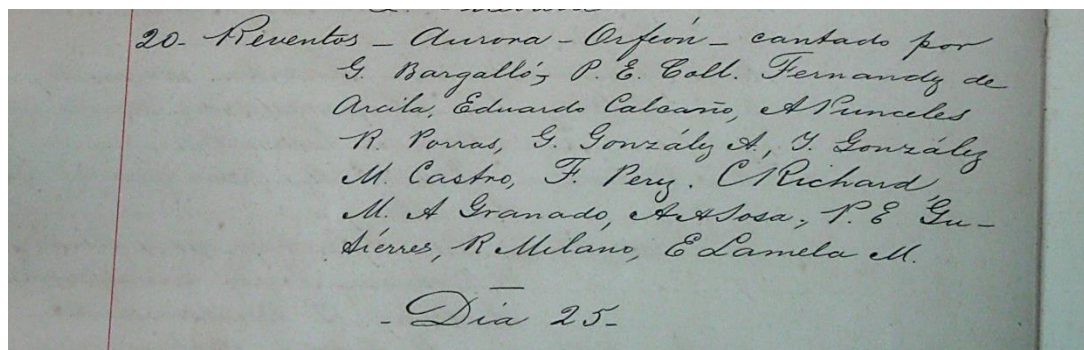 20- Reventos - Aurora - Orfeón - cantado por
G. Bargalló, P. E. Coll. Fernandz de
Arcila, Eduardo Calcaño, A Punceles
R. Porras, G. González A., Y. González
M. Castro, F. Perez. C Richard
M. A Granado, A A Sosa, P. E Gu-
tiérres, R Milano, E Lamela M.
- Dia 25-